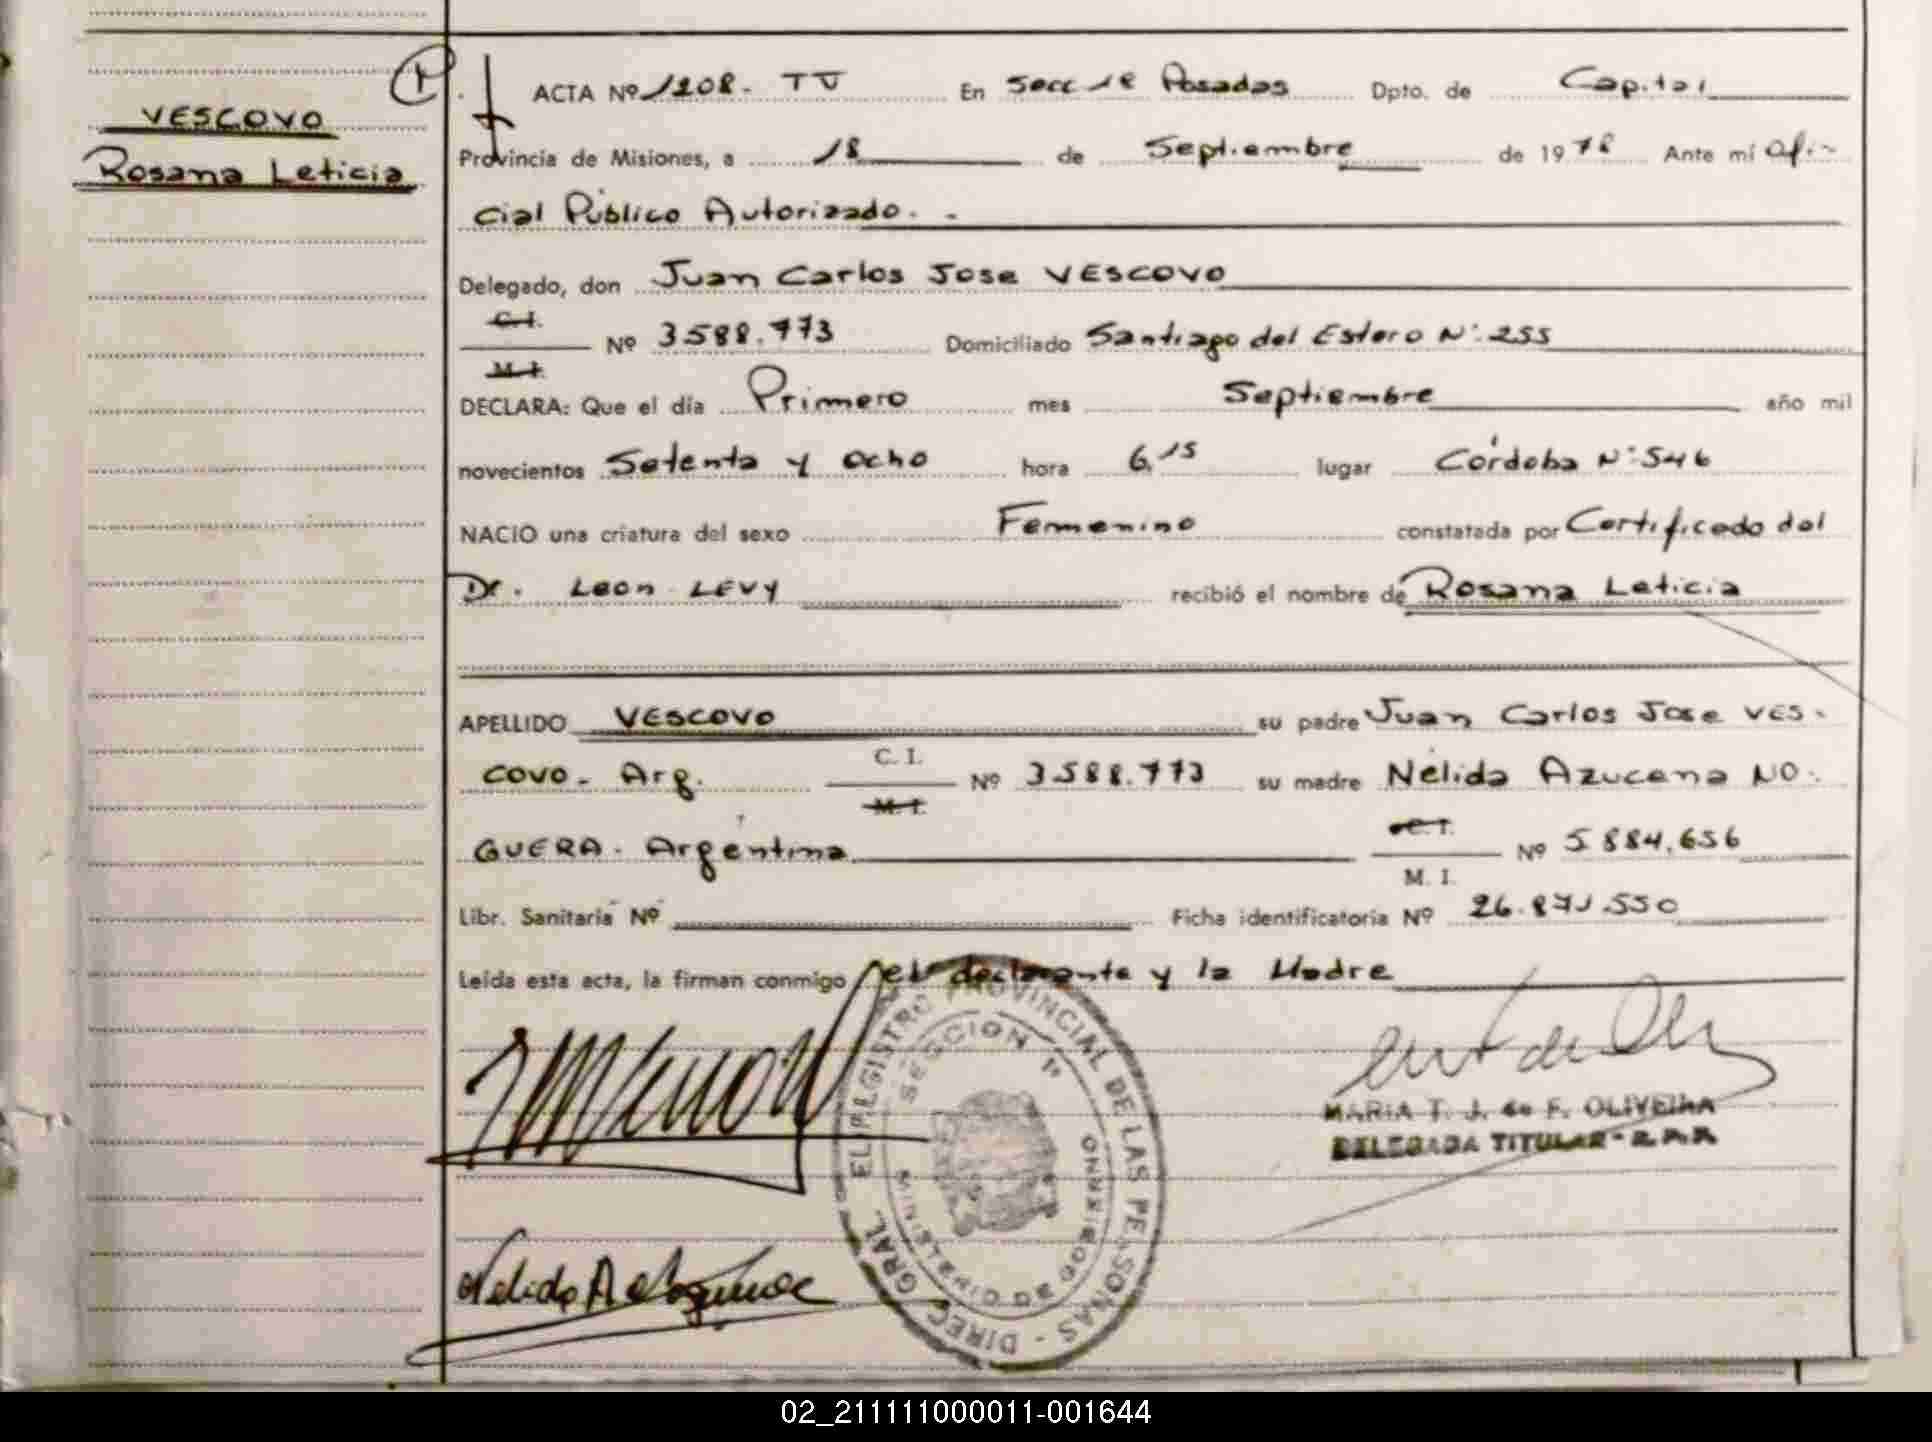 VESCOVO
Rosana Leticia
ACTA Nº 1208. TV En Secc 1ª Posadas Dpto. de Capital
Provincia de Misiones, a 18 de Septiembre de 1978 Ante mí Ofi-
cial Público Autorizado. -
Delegado, don Juan Carlos Jose VESCOVO
C. I.
Nº 3.588.773 Domiciliado Santiago del Estero Nº: 255
M. I.
DECLARA: Que el día Primero mes Septiembre año mil
novecientos Setenta y ocho hora 6,15 lugar Córdoba Nº: 546
NACIO una criatura del sexo Femenino constatada por Certificado del
Dr. Leon LEVY recibió el nombre de Rosana Leticia
APELLIDO VESCOVO su padre Juan Carlos Jose VES-
C. I.
COVO - Arg. Nº 3.588.773 su madre Nélida Azucena NO-
M. I.
C. I.
GUERA - Argentina Nº 5.884.656
M. I.
Libr. Sanitaria Nº Ficha identificatoria Nº 26.871.550
Leída esta acta, la firman conmigo el declarante y la Madre
DIREC. GRAL. REGISTRO PROVINCIAL DE LAS PERSONAS
SECCION 1ª
MARIA T. J. de F. OLIVEIRA
DELEGADA TITULAR - R.P.P.
Nelida A Noguera
02_211111000011-001644